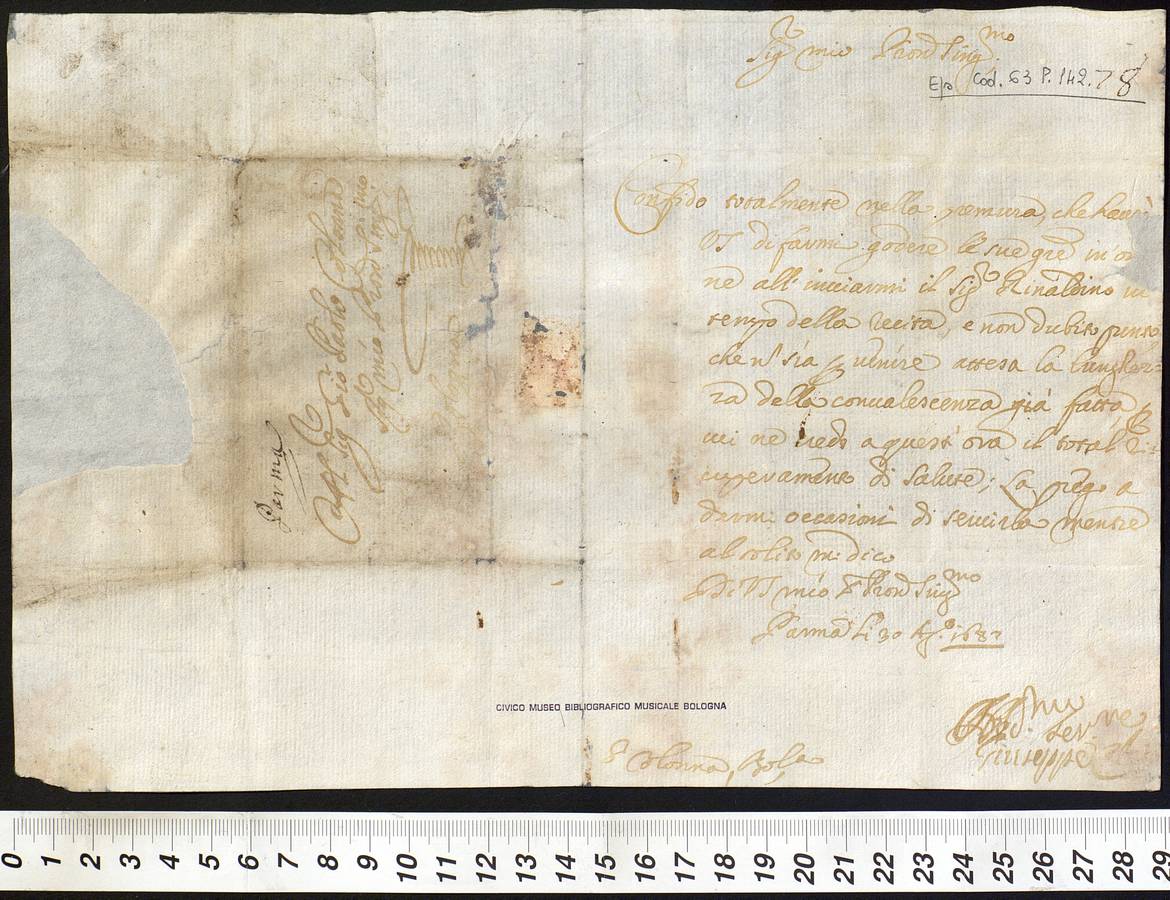 Sig.r mio Pron Sing.mo
Ep. Cod. 63 P. 142. 78
Confido totalmente nella premura, che haurà
VS di farmi godere le sue grē in or
ne all' inuiarmi il Sig.r Rinaldino in
tempo della recita, e non dubito punto
che nō sia p uenire attesa la lunghez=
za della conualescenza già fatta, e
mi ne uedo a quest' ora il total ri=
cuperamento di salute; La prego a
darmi occasioni di seruirla mentre
al solito mi dico
Di VS mio S.r Pron Sing.mo
Parma li 30 Ag.o 168
S.r Colonna, Bol.a
Deu.mo
Ser.re
Giuseppe
Parma
Al Sig.r Gio Paolo Colonna
Sig.r mio Pron Sing.mo
Bologna
CIVICO MUSEO BIBLIOGRAFICO MUSICALE BOLOGNA
0 1 2 3 4 5 6 7 8 9 10 11 12 13 14 15 16 17 18 19 20 21 22 23 24 25 26 27 28 29